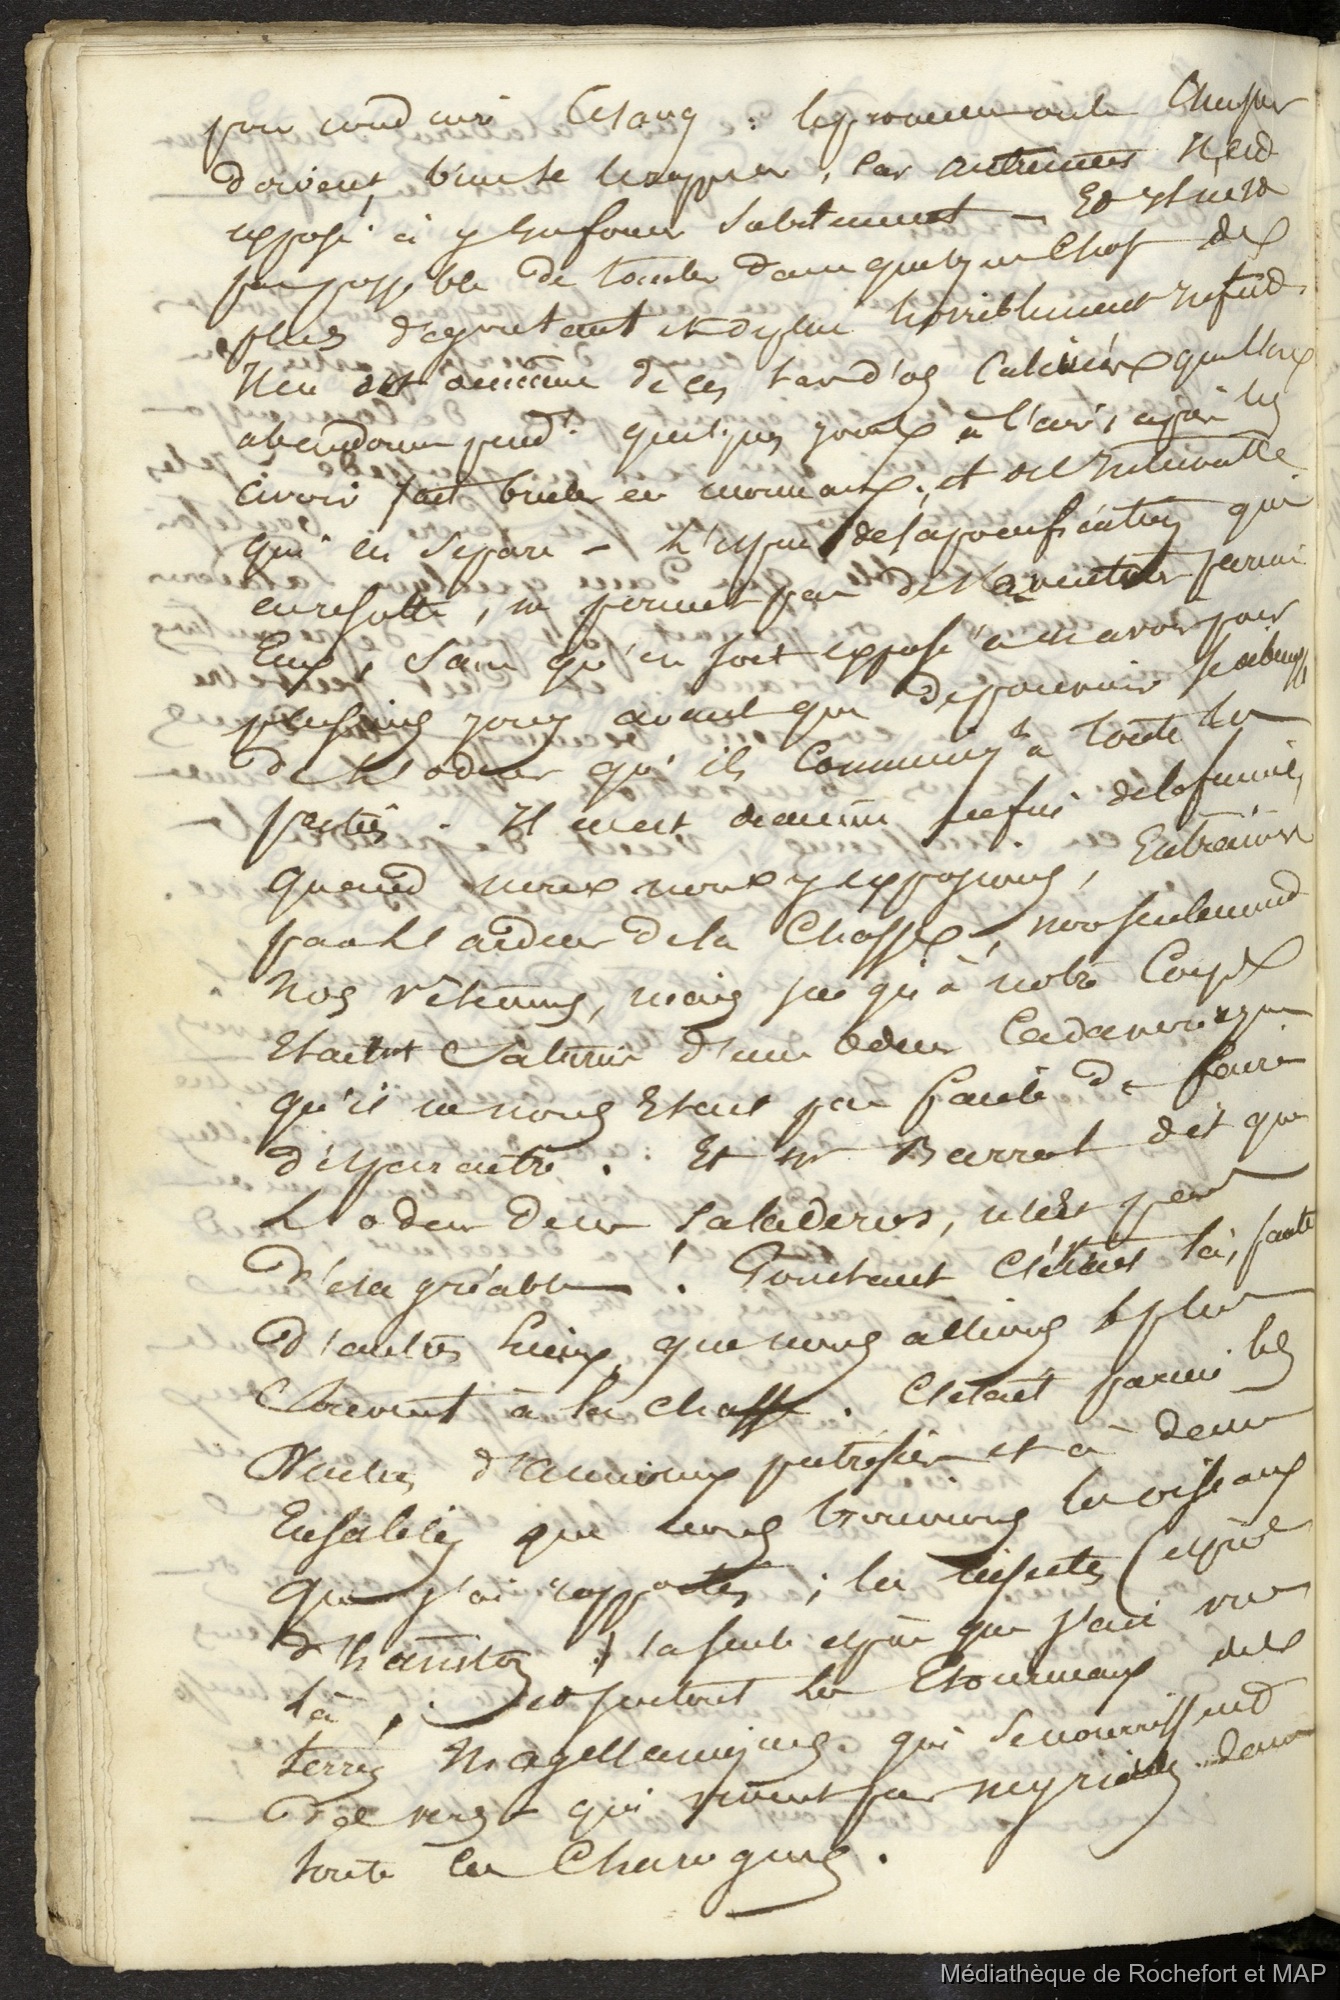 pour conduire le sang : les promeneurs ou le chasseur
doivent bien se le rappeler, car autrement il est
exposé à y enfoncer subitement — Et il n'est
pas possible de tomber dans quelque chose de
plus dégoutant et de plus horriblement infect.
Il en est de même de ces tas d'os calcinés que l'on
abandonne pendt. quelques jours à l'air, après les
avoir fait bruler en monceaux, et
qui en sépare — L'espèce de saponification qui
en resulte, ne permet pas de s'aventurer parmi
Eux, sans qu'on soit exposé à en avoir pour
plusieurs jours avant que de pouvoir
de l'odeur qu'ils communiqt à toute les
parties. Il en est de même de la fumée,
quand nous nous y exposions, Entrainés
par L'ardeur de la Chasse, non seulement
nos vêtemens, mais jusqu'à notre Corps
Etaient saturés d'une odeur cadaverique
qu'il ne nous Etait pas facile de faire
disparaitre. Et Mr Barrat dit que
L'odeur des Saladeros, n'est pas
Désagréable ! Pourtant C'était là, faute
D'autres lieux, que nous allions le plus
souvent à la chasse. C'était parmi les
restes d'animaux putréfiés et à demi
Ensablés que nous trouvions les oiseaux
que j'ai rapportés ; les insectes (espèce
d'hanneton) la seule espèce que j'ai vue
là ; et surtout les Etourneaux des
terres Magellaniques qui se nourrissent
de vers — qui vivent par myriades dans
toute les Charognes.
Médiathèque de Rochefort et MAP